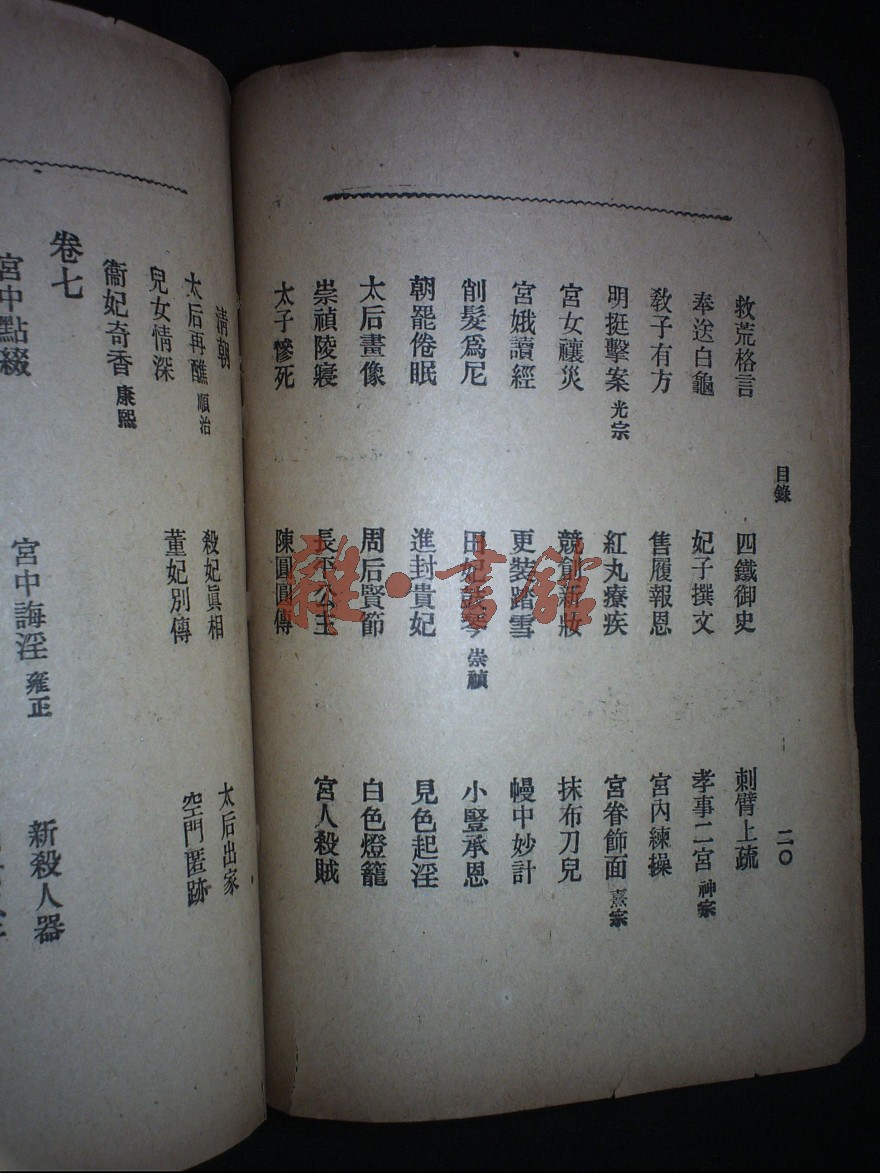 目錄
二〇
救荒格言 四鐵御史 刺臂上疏
奉送白龜 妃子撰文 孝事二宮 神宗
敎子有方 售履報恩 宮內練操
明挺擊案 光宗 紅丸療疾 宮眷飾面 熹宗
宮女禳災 競創新妝 抹布刀兒
宮娥讀經 更裝踏雪 幔中妙計
削髮爲尼 田妃鼓琴 崇禎 小豎承恩
朝罷倦眠 進封貴妃 見色起淫
太后畫像 周后賢節 白色燈籠
崇禎陵寢 長平公主 宮人殺賊
太子慘死 陳圓圓傳
清朝
太后再醮 順治 殺妃眞相 太后出家
兒女情深 董妃別傳 空門匿跡
衞妃奇香 康熙
卷七
宮中點綴 宮中誨淫 雍正 新殺人器
雜·書館